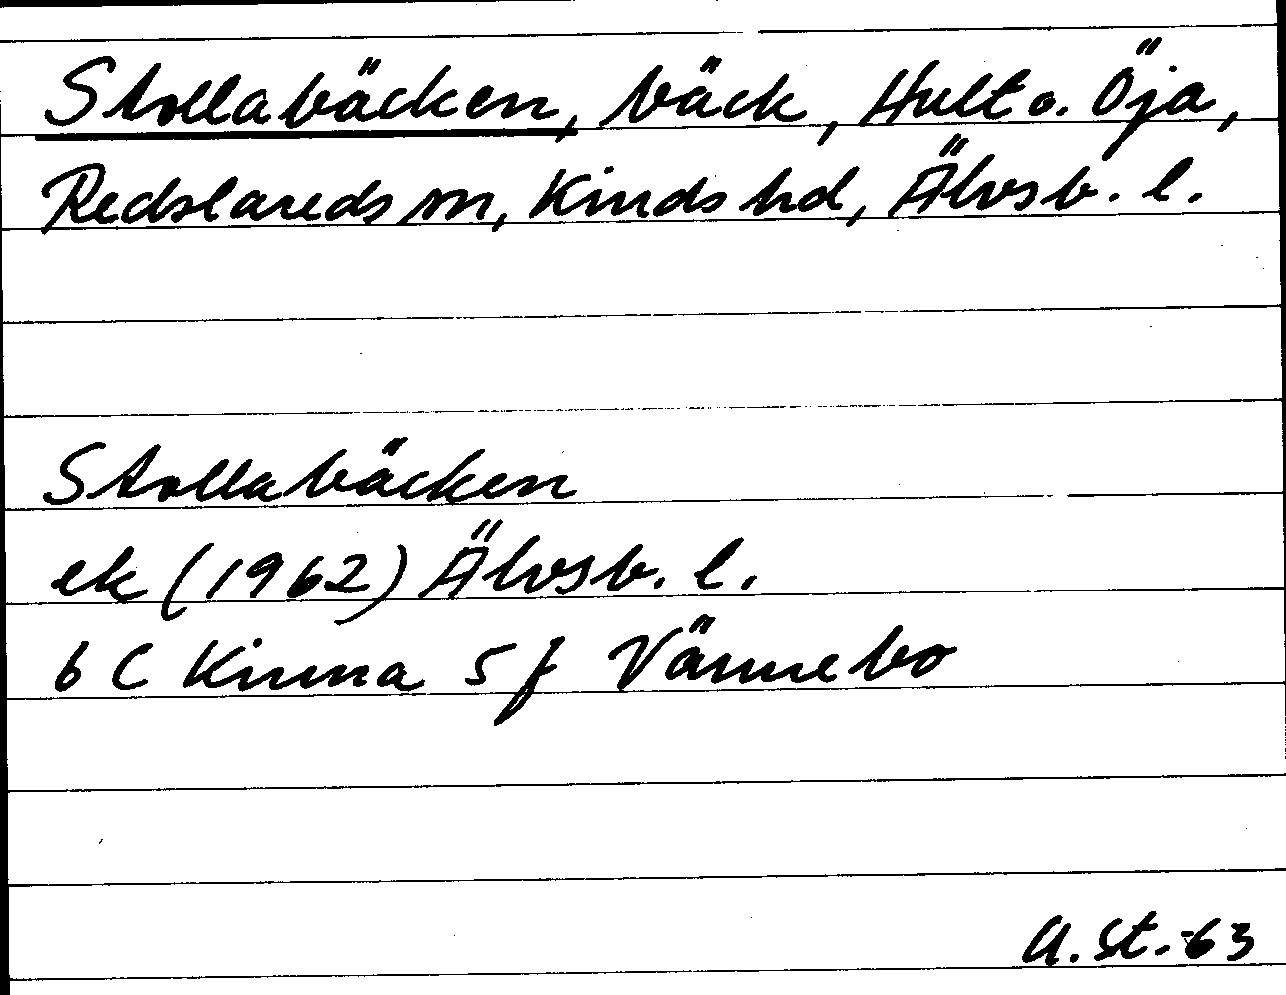 Stollabäcken, bäck, Hult o. Öja,
Redslareds sn, Kinds hd, Älvsb. l.
Stollabäcken
ek (1962) Älvsb. l.
6 C Kinna 5 f Vännebo
A. St. -63